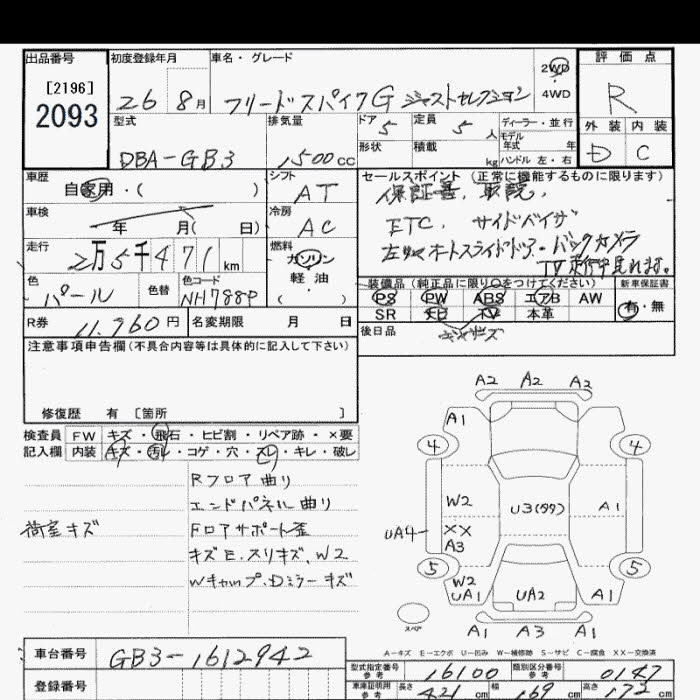 出品番号 初度登録年月 車名・グレード 評価点
[2196]
2093
26 8月 フリードスパイクG ジャストセレクション
2WD
4WD
R
型式 排気量 ドア 定員 ディーラー・並行
DBA-GB3 1500cc 5 5人
形状 積載 kg モデル年式 年式
ハンドル 左・右
外装 内装
D C
車歴 自家用・( )
シフト AT
車検 年 月( 日)
冷房 AC
走行 2万5千471km
燃料 ガソリン・軽油・( )
色 パール 色替 色コード NH788P
セールスポイント (正常に機能するものに限ります)
保証書、取説、
ETC、サイドバイザー
左右オートスライドドア・バックカメラ
TV走行中見れます。
装備品(純正品に限り○をつけてください) 新車保証書
PS PW ABS エアB AW 有・無
SR ナビ TV 本革
後日品
R券 11,960円 名変期限 月 日
注意事項申告欄(不具合内容等は具体的に記入して下さい)
修復歴 有 [箇所 ]
検査員 FW キズ・飛石・ヒビ割・リペア跡・×要
記入欄 内装 キズ・汚レ・コゲ・穴・スレ・キレ・破レ
荷室キズ
Rフロア曲り
エンドパネル曲り
Fロアサポート歪
キズE、スリキズ、W2
Wキャップ・Dミラーキズ
A2 A2 A2
A1
4 4
W2 U3(タタ) A1
UA4 XX
A3
5 5
W2
UA1 UA2 A1
スペア
A1 A3 A1
A-キズ E-エクボ U-凹み W-補修跡 S-サビ C-腐食 XX-交換済
車台番号 GB3-1612942
登録番号
型式指定番号 参考 16100 類別区分番号 参考 0147
車庫証明用 参考 長さ 421cm 幅 169cm 高さ 172cm